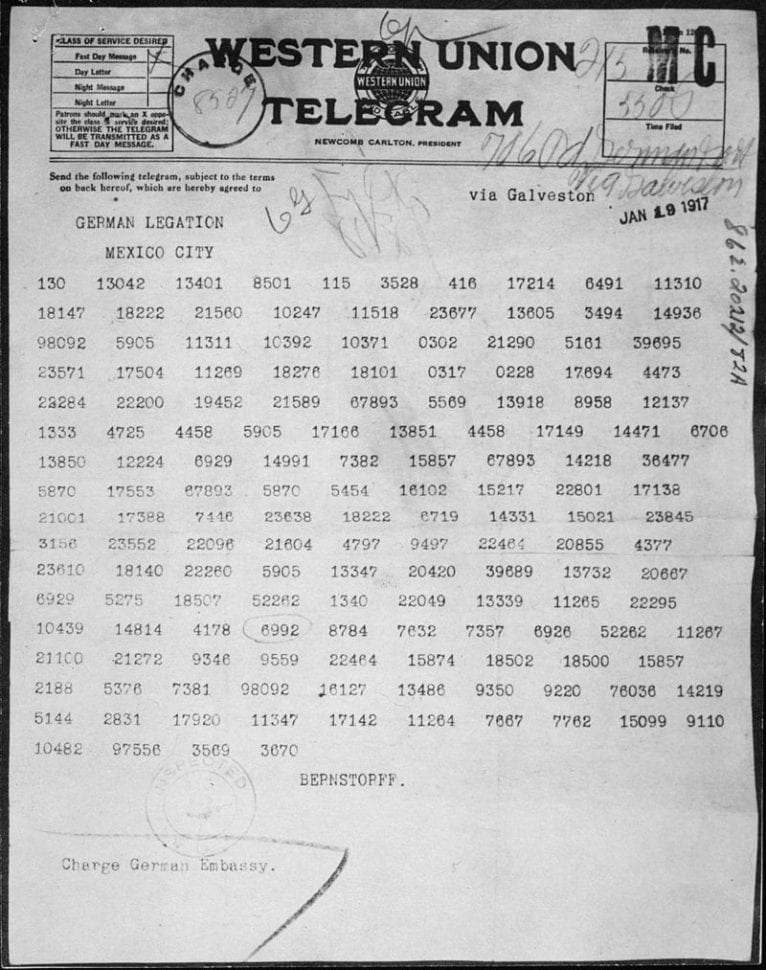 CLASS OF SERVICE DESIRED
Fast Day Message
Day Letter
Night Message
Night Letter
Patrons should mark an X oppo-
site the class of service desired;
OTHERWISE THE TELEGRAM
WILL BE TRANSMITTED AS A
FAST DAY MESSAGE.
WESTERN UNION
WESTERN UNION
TELEGRAM
NEWCOMB CARLTON, PRESIDENT
Receiver's No.
Check
Time Filed
Send the following telegram, subject to the terms
on back hereof, which are hereby agreed to
via Galveston
JAN 19 1917
GERMAN LEGATION
MEXICO CITY
130 13042 13401 8501 115 3528 416 17214 6491 11310
18147 18222 21560 10247 11518 23677 13605 3494 14936
98092 5905 11311 10392 10371 0302 21290 5161 39695
23571 17504 11269 18276 18101 0317 0228 17694 4473
22284 22200 19452 21589 67893 5569 13918 8958 12137
1333 4725 4458 5905 17166 13851 4458 17149 14471 6706
13850 12224 6929 14991 7382 15857 67893 14218 36477
5870 17553 67893 5870 5454 16102 15217 22801 17138
21001 17388 7446 23638 18222 6719 14331 15021 23845
3156 23552 22096 21604 4797 9497 22464 20855 4377
23610 18140 22260 5905 13347 20420 39689 13732 20667
6929 5275 18507 52262 1340 22049 13339 11265 22295
10439 14814 4178 6992 8784 7632 7357 6926 52262 11267
21100 21272 9346 9559 22464 15874 18502 18500 15857
2188 5376 7381 98092 16127 13486 9350 9220 76036 14219
5144 2831 17920 11347 17142 11264 7667 7762 15099 9110
10482 97556 3569 3670
BEPNSTOPFF.
INSPECTED
Charge German Embassy.